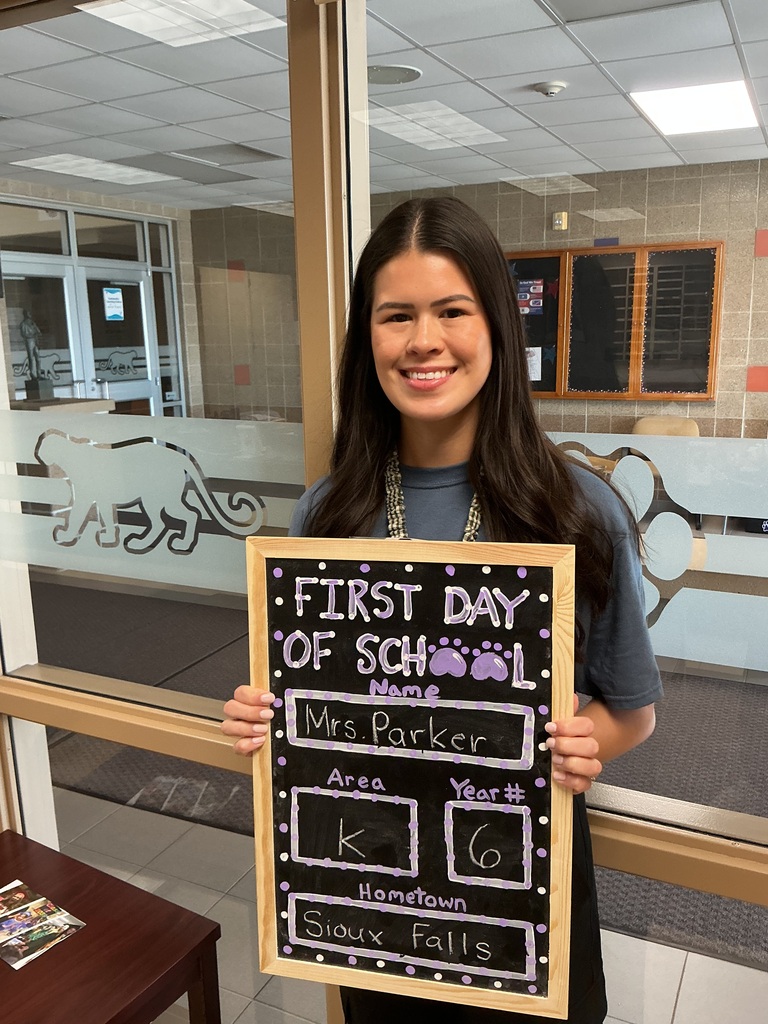 FIRST DAY
OF SCHOOL
Name
Mrs. Parker
Area Year #
K 6
Hometown
Sioux Falls